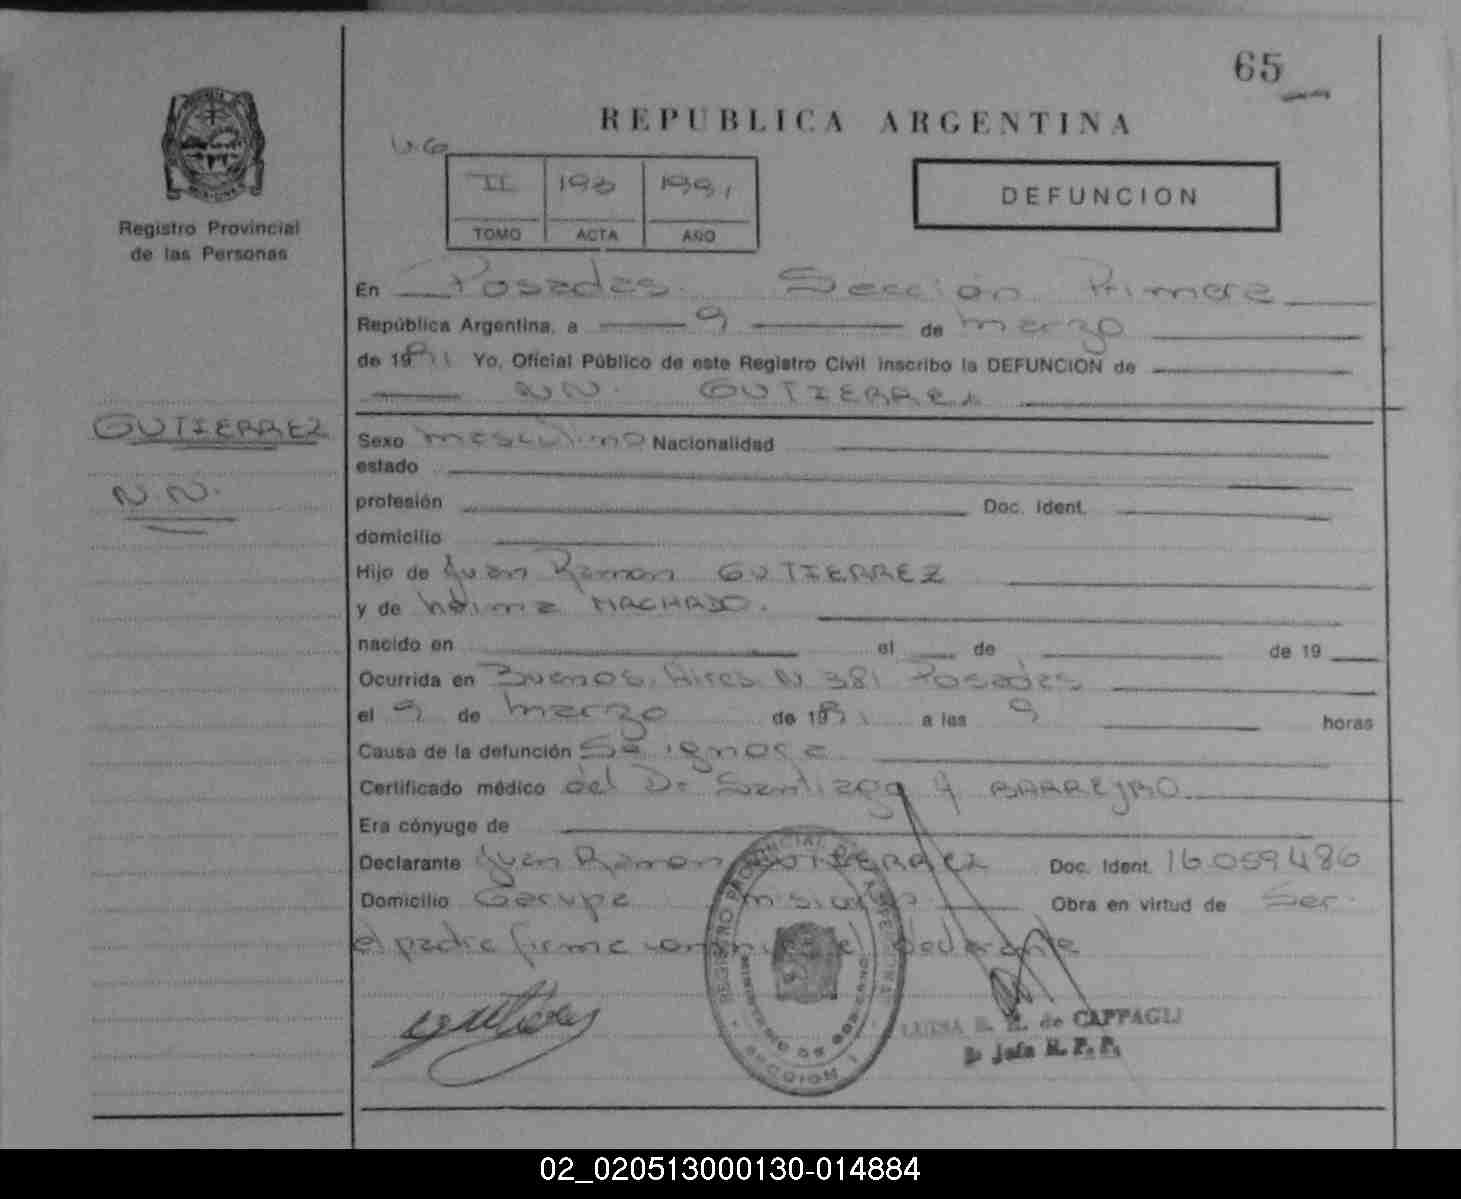 65
REPUBLICA ARGENTINA
II 193 1991
TOMO ACTA AÑO
DEFUNCION
Registro Provincial
de las Personas
En Posadas. Sección Primera
República Argentina, a 9 de marzo
de 19 Yo, Oficial Público de este Registro Civil inscribo la DEFUNCION de
N.N. GUTIERREZ
GUTIERREZ
N.N.
Sexo masculino Nacionalidad
estado
profesión Doc. Ident.
domicilio
Hijo de Juan Ramon GUTIERREZ
y de MACHADO.
nacido en el de de 19
Ocurrida en Buenos Aires N 381 Posadas
el 9 de marzo de 19 a las 9 horas
Causa de la defunción Se ignora
Certificado médico del Dr Santiago A BARREYRO
Era cónyuge de
Declarante Juan Ramon GUTIERREZ Doc. Ident. 16.059.486
Domicilio Garupa Misiones Obra en virtud de Ser
el padre firma conmigo el declarante
REGISTRO PROVINCIAL DE LAS PERSONAS
MINISTERIO DE GOBIERNO
SECCION 1
LUISA de CAPPAGLI
Jefa R. P. P.
02_020513000130-014884